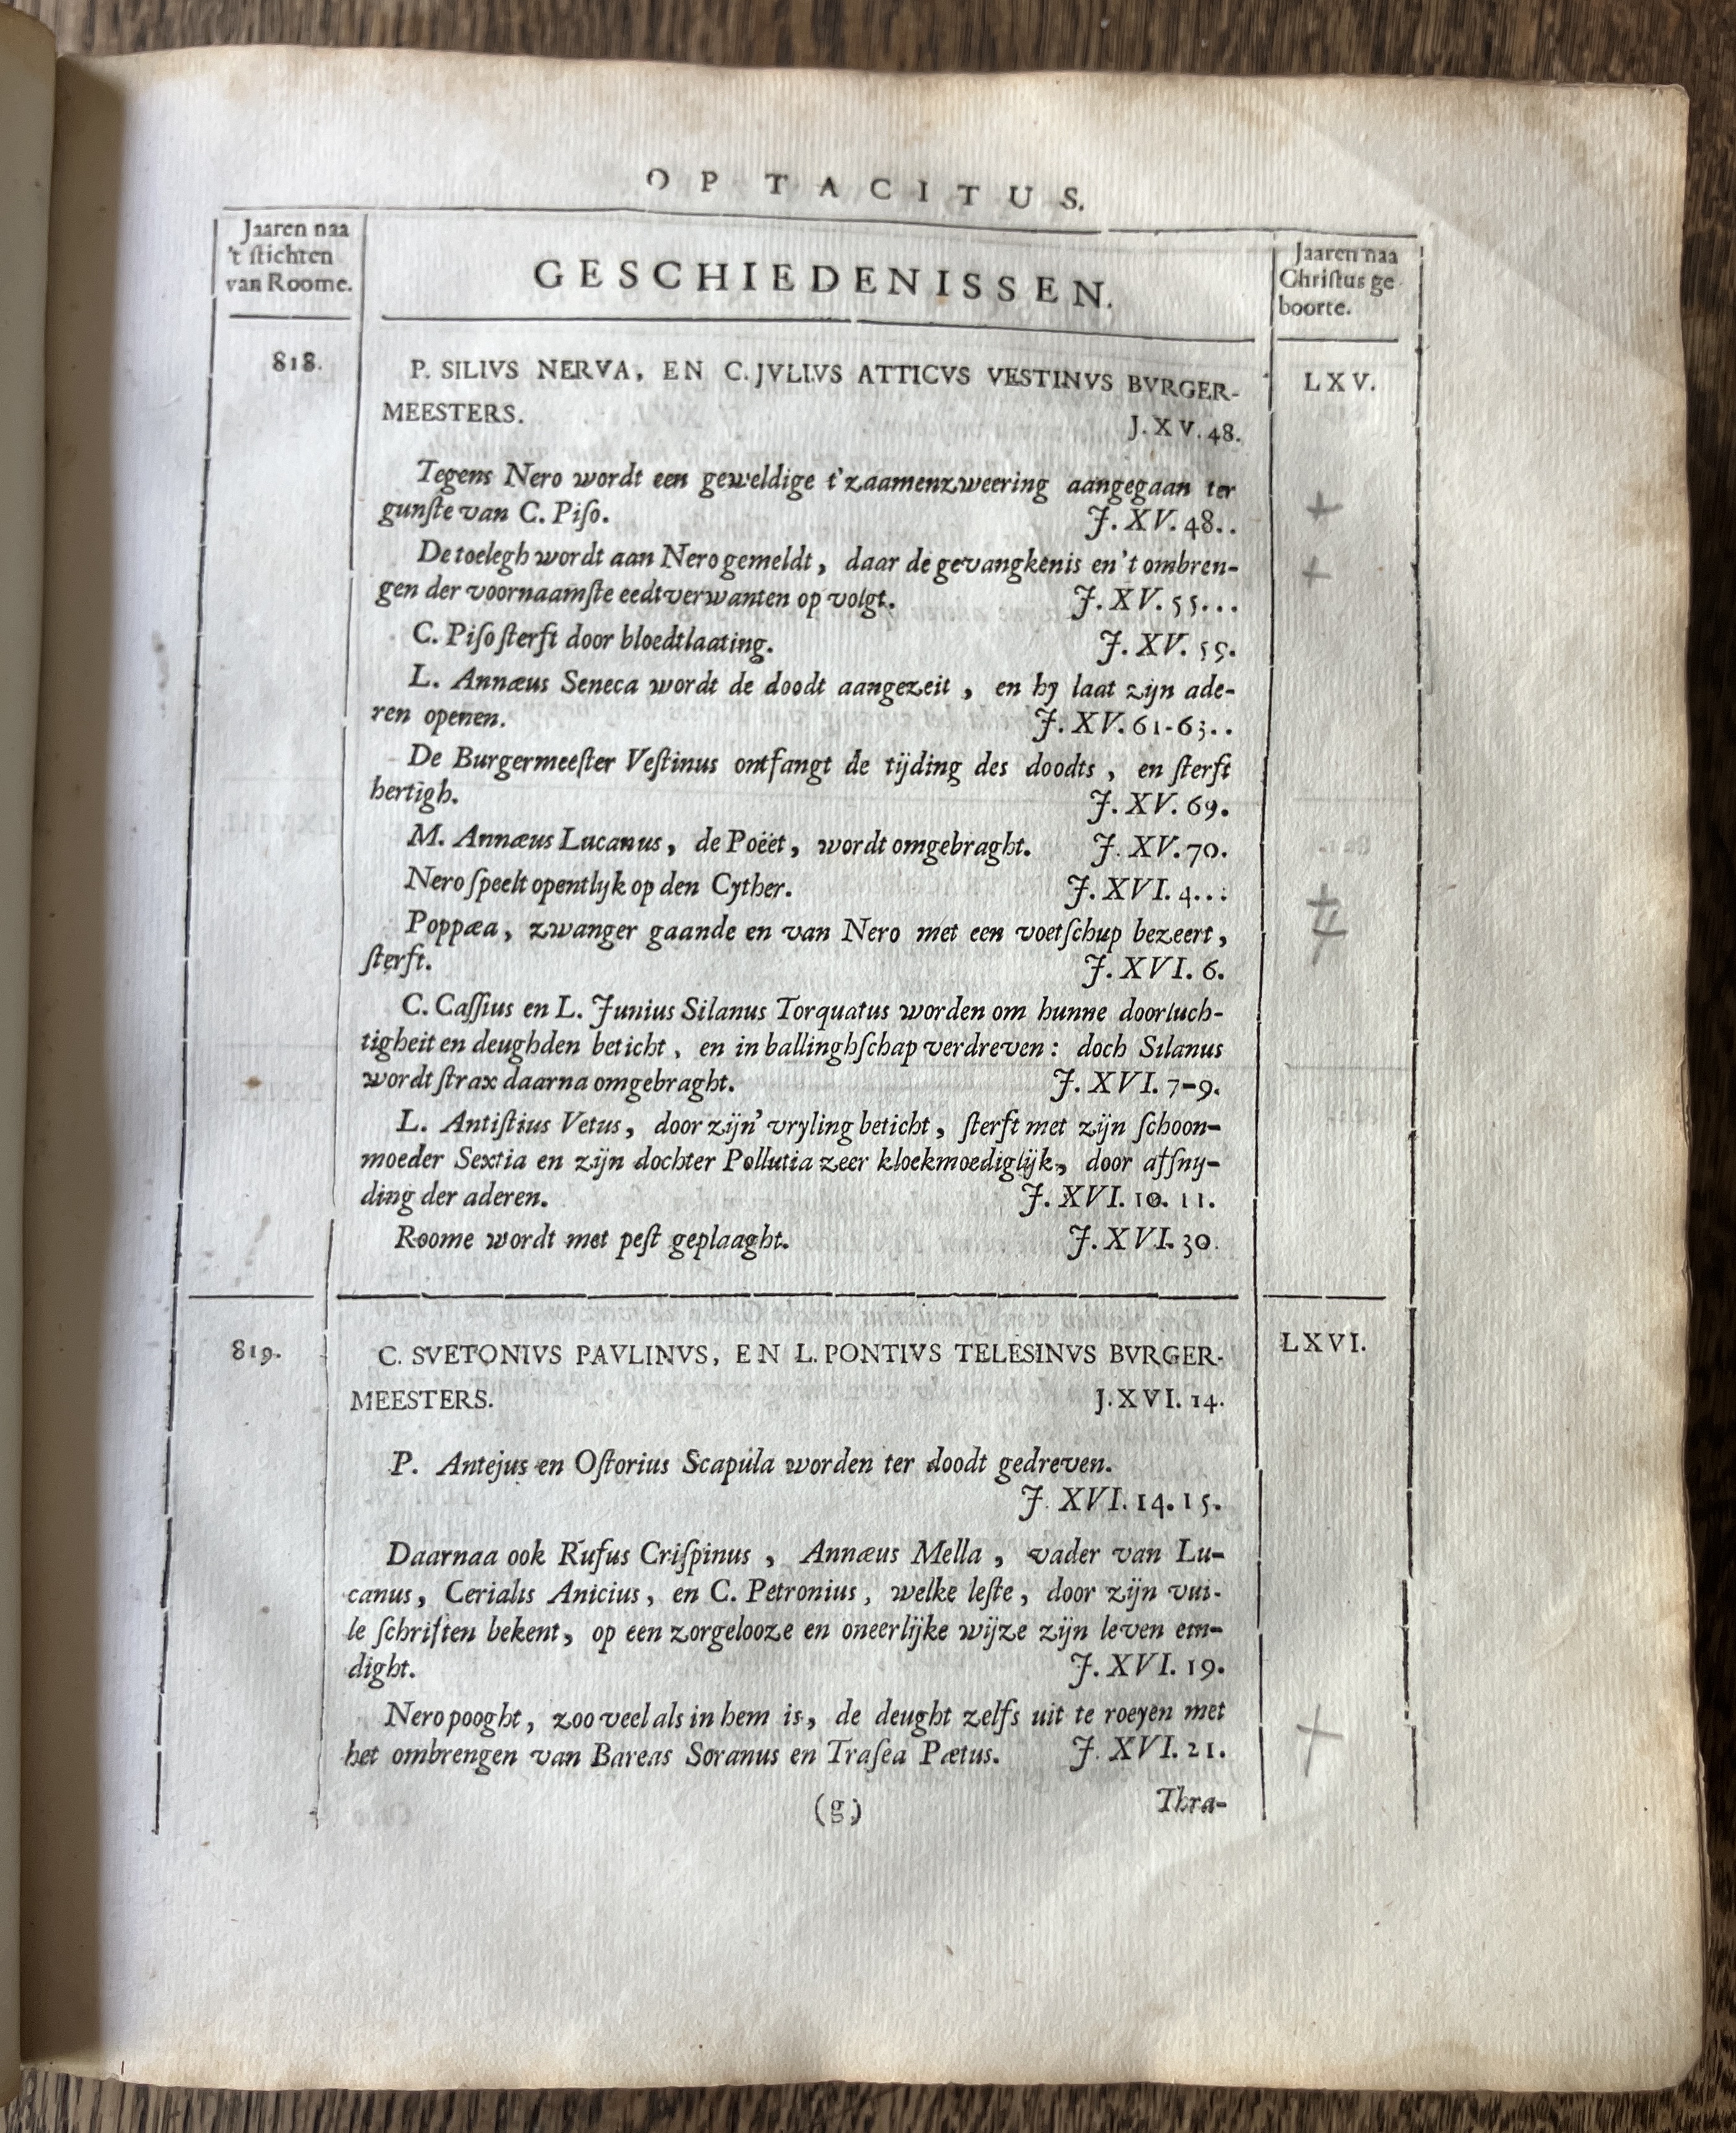 OP TACITUS.
Jaaren naa
't ſtichten
van Roome.
GESCHIEDENISSEN.
Jaaren naa
Chriſtus ge
boorte.
818.
P. SILIVS NERVA, EN C. JVLIVS ATTICVS VESTINVS BVRGER-
LXV.
MEESTERS. J. XV. 48.
Tegens Nero wordt een geweldige t'zaamenzweering aangegaan ter
gunſte van C. Piſo. J. XV. 48..
De toelegh wordt aan Nero gemeldt, daar de gevangkenis en 't ombren-
gen der voornaamſte eedtverwanten op volgt. J. XV. 55...
C. Piſo ſterft door bloedtlaating. J. XV. 55.
L. Annæus Seneca wordt de doodt aangezeit, en hy laat zijn ade-
ren openen. J. XV. 61-63..
De Burgermeeſter Veſtinus ontfangt de tijding des doodts, en ſterft
hertigh. J. XV. 69.
M. Annæus Lucanus, de Poëet, wordt omgebraght. J. XV. 70.
Nero ſpeelt opentlyk op den Cyther. J. XVI. 4...
Poppæa, zwanger gaande en van Nero met een voetſchup bezeert,
ſterft. J. XVI. 6.
C. Caſſius en L. Junius Silanus Torquatus worden om hunne doorluch-
tigheit en deughden beticht, en in ballinghſchap verdreven: doch Silanus
wordt ſtrax daarna omgebraght. J. XVI. 7-9.
L. Antiſtius Vetus, door zijn' vryling beticht, ſterft met zijn ſchoon-
moeder Sextia en zijn dochter Pollutia zeer kloekmoediglijk, door afſny-
ding der aderen. J. XVI. 10. 11.
Roome wordt met peſt geplaaght. J. XVI. 30.
819.
C. SVETONIVS PAVLINVS, EN L. PONTIVS TELESINVS BVRGER-
LXVI.
MEESTERS. J. XVI. 14.
P. Antejus en Oſtorius Scapula worden ter doodt gedreven.
J. XVI. 14. 15.
Daarnaa ook Rufus Criſpinus, Annæus Mella, vader van Lu-
canus, Cerialis Anicius, en C. Petronius, welke leſte, door zijn vui-
le ſchriften bekent, op een zorgelooze en oneerlijke wijze zijn leven ein-
dight. J. XVI. 19.
Nero pooght, zoo veel als in hem is, de deught zelfs uit te roeyen met
het ombrengen van Bareas Soranus en Traſea Pætus. J. XVI. 21.
(g) Thra-